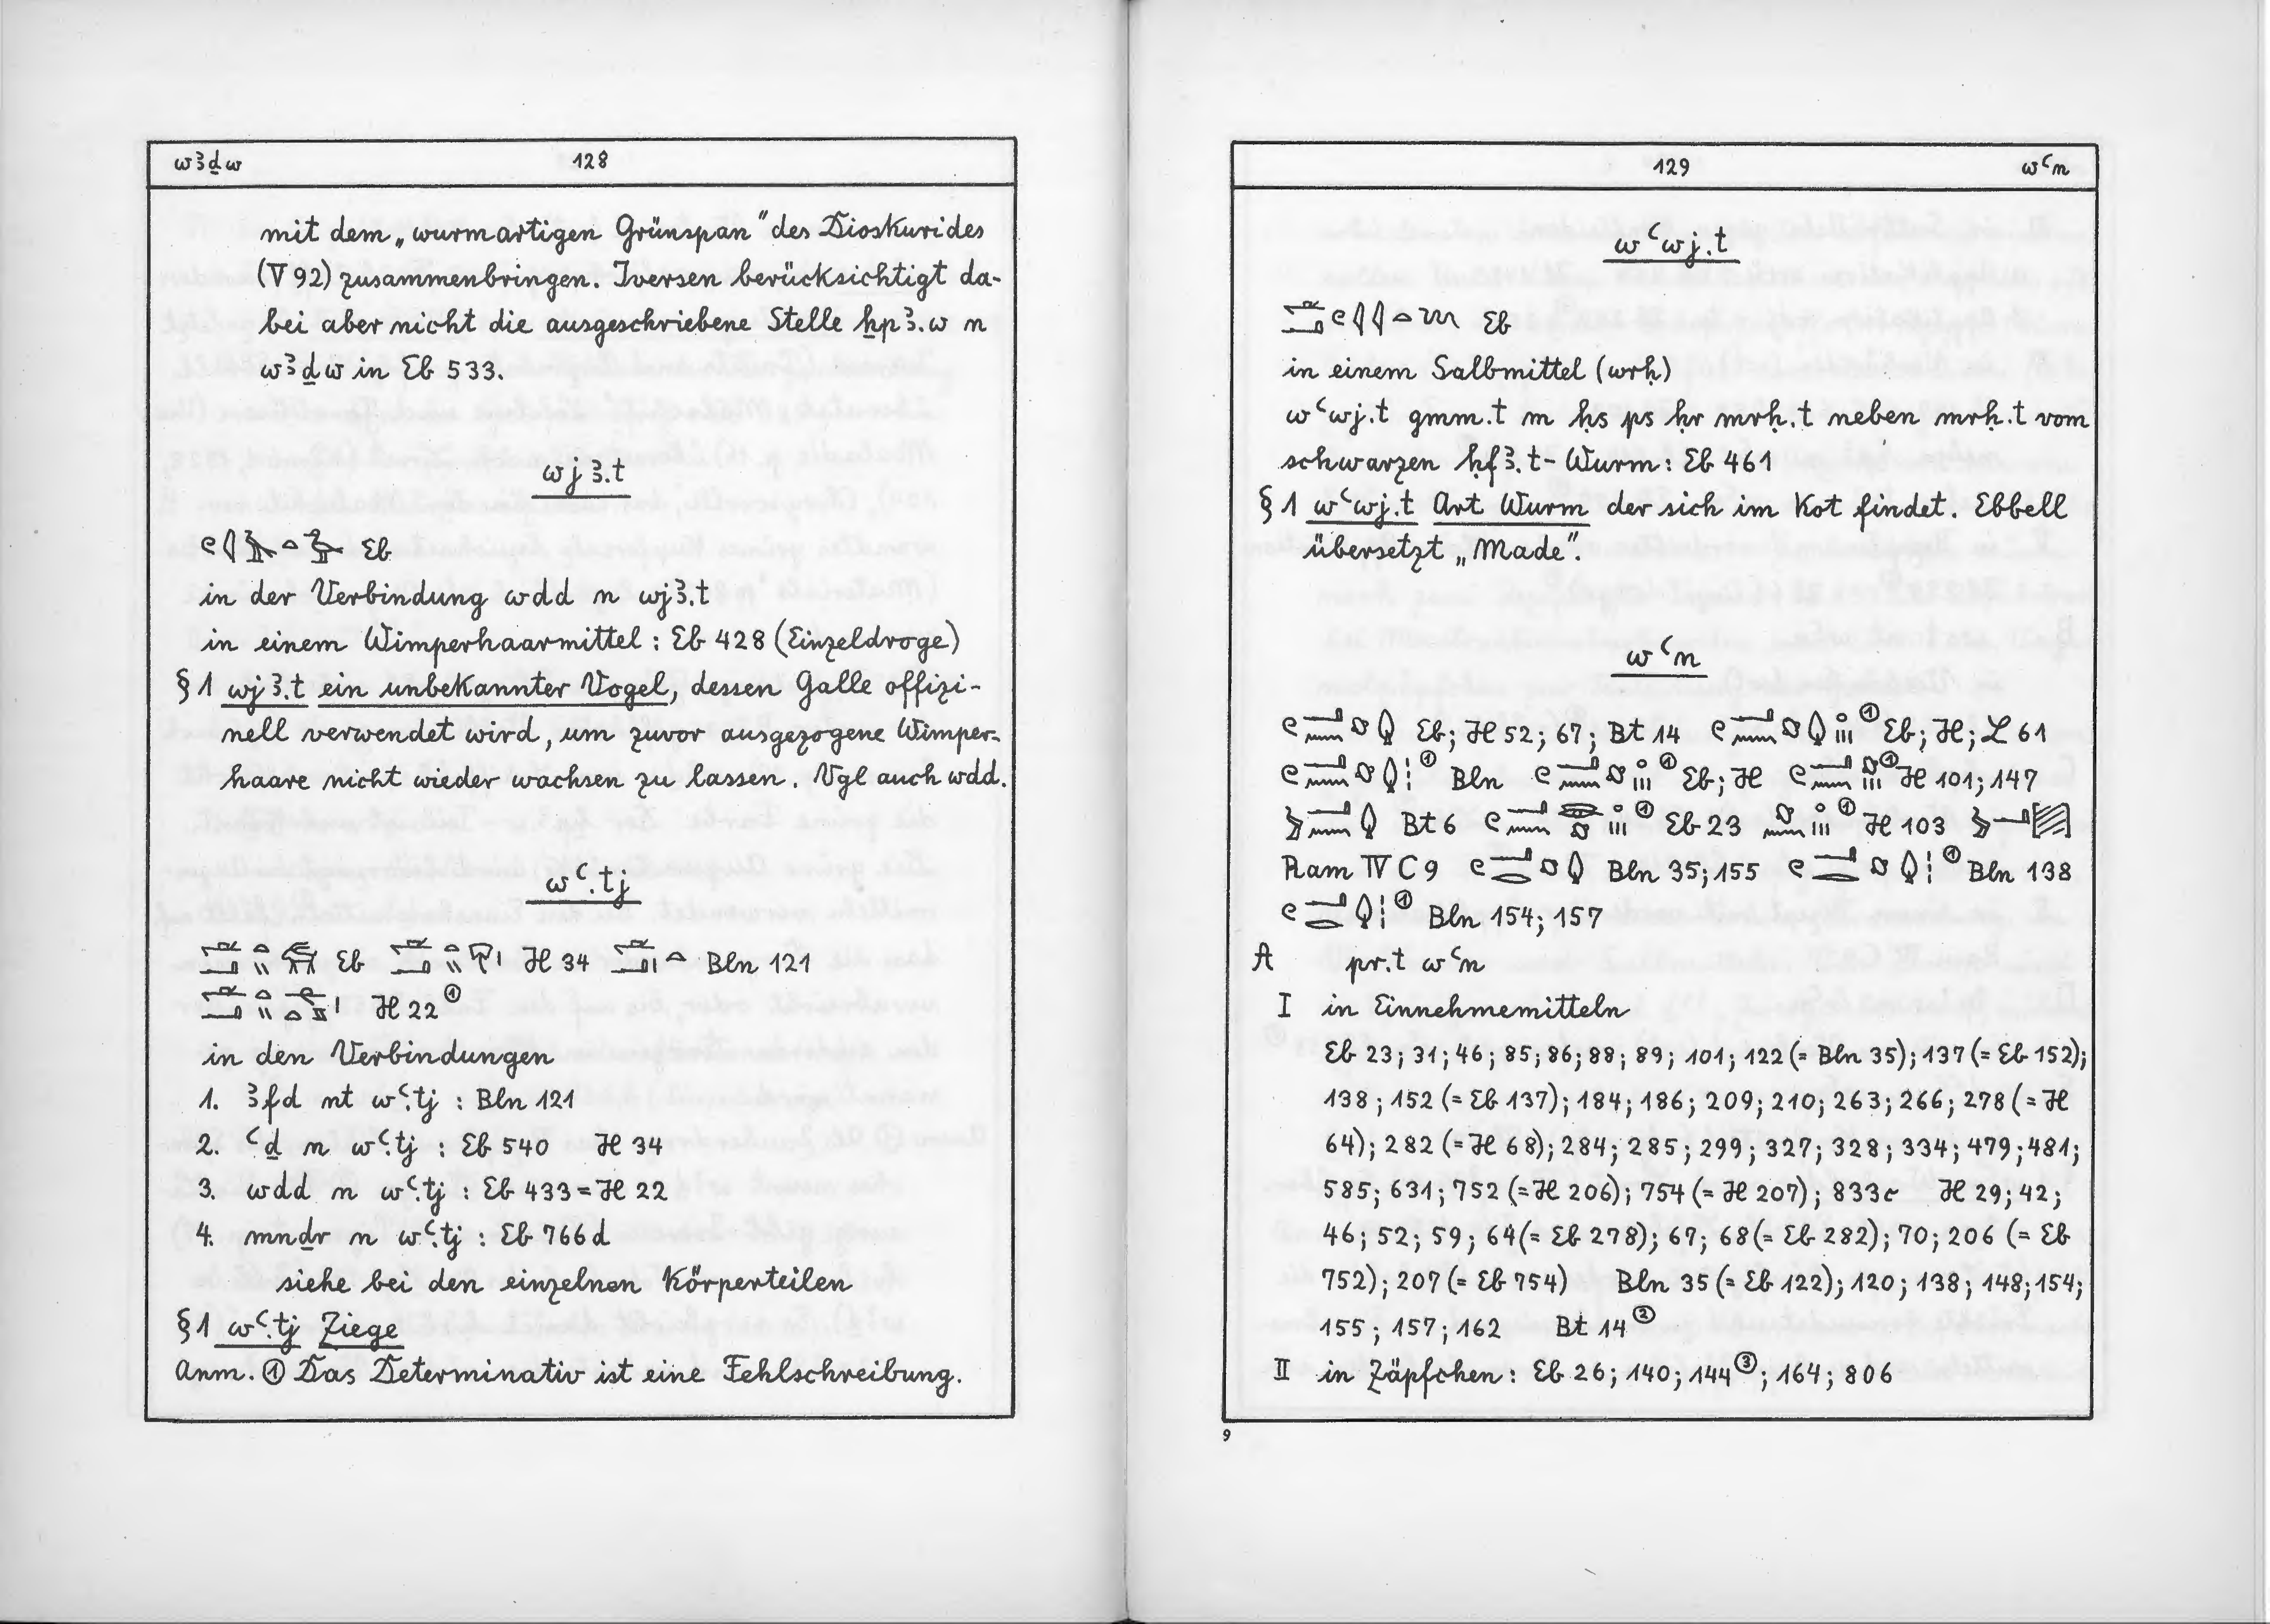 wꜣḏw 128
mit dem „wurmartigen Grünspan" des Dioskurides
(V 92) zusammenbringen. Iversen berücksichtigt da-
bei aber nicht die ausgeschriebene Stelle ẖpꜣ.w n
wꜣḏw in Eb 533.
wjꜣ.t
Eb
in der Verbindung wdd n wjꜣ.t
in einem Wimperhaarmittel : Eb 428 (Einzeldroge)
§ 1 wjꜣ.t ein unbekannter Vogel, dessen Galle offizi-
nell verwendet wird, um zuvor ausgezogene Wimper-
haare nicht wieder wachsen zu lassen. Vgl auch wdd.
wꜥ.tj
Eb H 34 Bln 121
H 22 ①
in den Verbindungen
1. ꜣfd nt wꜥ.tj : Bln 121
2. ꜥḏ n wꜥ.tj : Eb 540 H 34
3. wdd n wꜥ.tj : Eb 433 = H 22
4. mnḏr n wꜥ.tj : Eb 766 d
siehe bei den einzelnen Körperteilen
§ 1 wꜥ.tj Ziege
Anm. ① Das Determinativ ist eine Fehlschreibung.
129 wꜥn
wꜥwj.t
Eb
in einem Salbmittel (wrḥ)
wꜥwj.t gmm.t m ḥs ps ḥr mrḥ.t neben mrḥ.t vom
schwarzen ḥfꜣ.t-Wurm : Eb 461
§ 1 wꜥwj.t Art Wurm der sich im Kot findet. Ebbell
übersetzt „Made".
wꜥn
Eb; H 52; 67; Bt 14 ① Eb; H; L 61
① Bln ① Eb; H ① H 101; 147
Bt 6 ① Eb 23 ① H 103
Ram IV C 9 Bln 35; 155 ① Bln 138
① Bln 154; 157
A pr.t wꜥn
I in Einnehmemitteln
Eb 23; 31; 46; 85; 86; 88; 89; 101; 122 (= Bln 35); 137 (= Eb 152);
138; 152 (= Eb 137); 184; 186; 209; 210; 263; 266; 278 (= H
64); 282 (= H 68); 284; 285; 299; 327; 328; 334; 479; 481;
585; 631; 752 (= H 206); 754 (= H 207); 833c H 29; 42;
46; 52; 59; 64 (= Eb 278); 67; 68 (= Eb 282); 70; 206 (= Eb
752); 207 (= Eb 754) Bln 35 (= Eb 122); 120; 138; 148; 154;
155; 157; 162 Bt 14 ②
II in Zäpfchen : Eb 26; 140; 144 ③; 164; 806
9